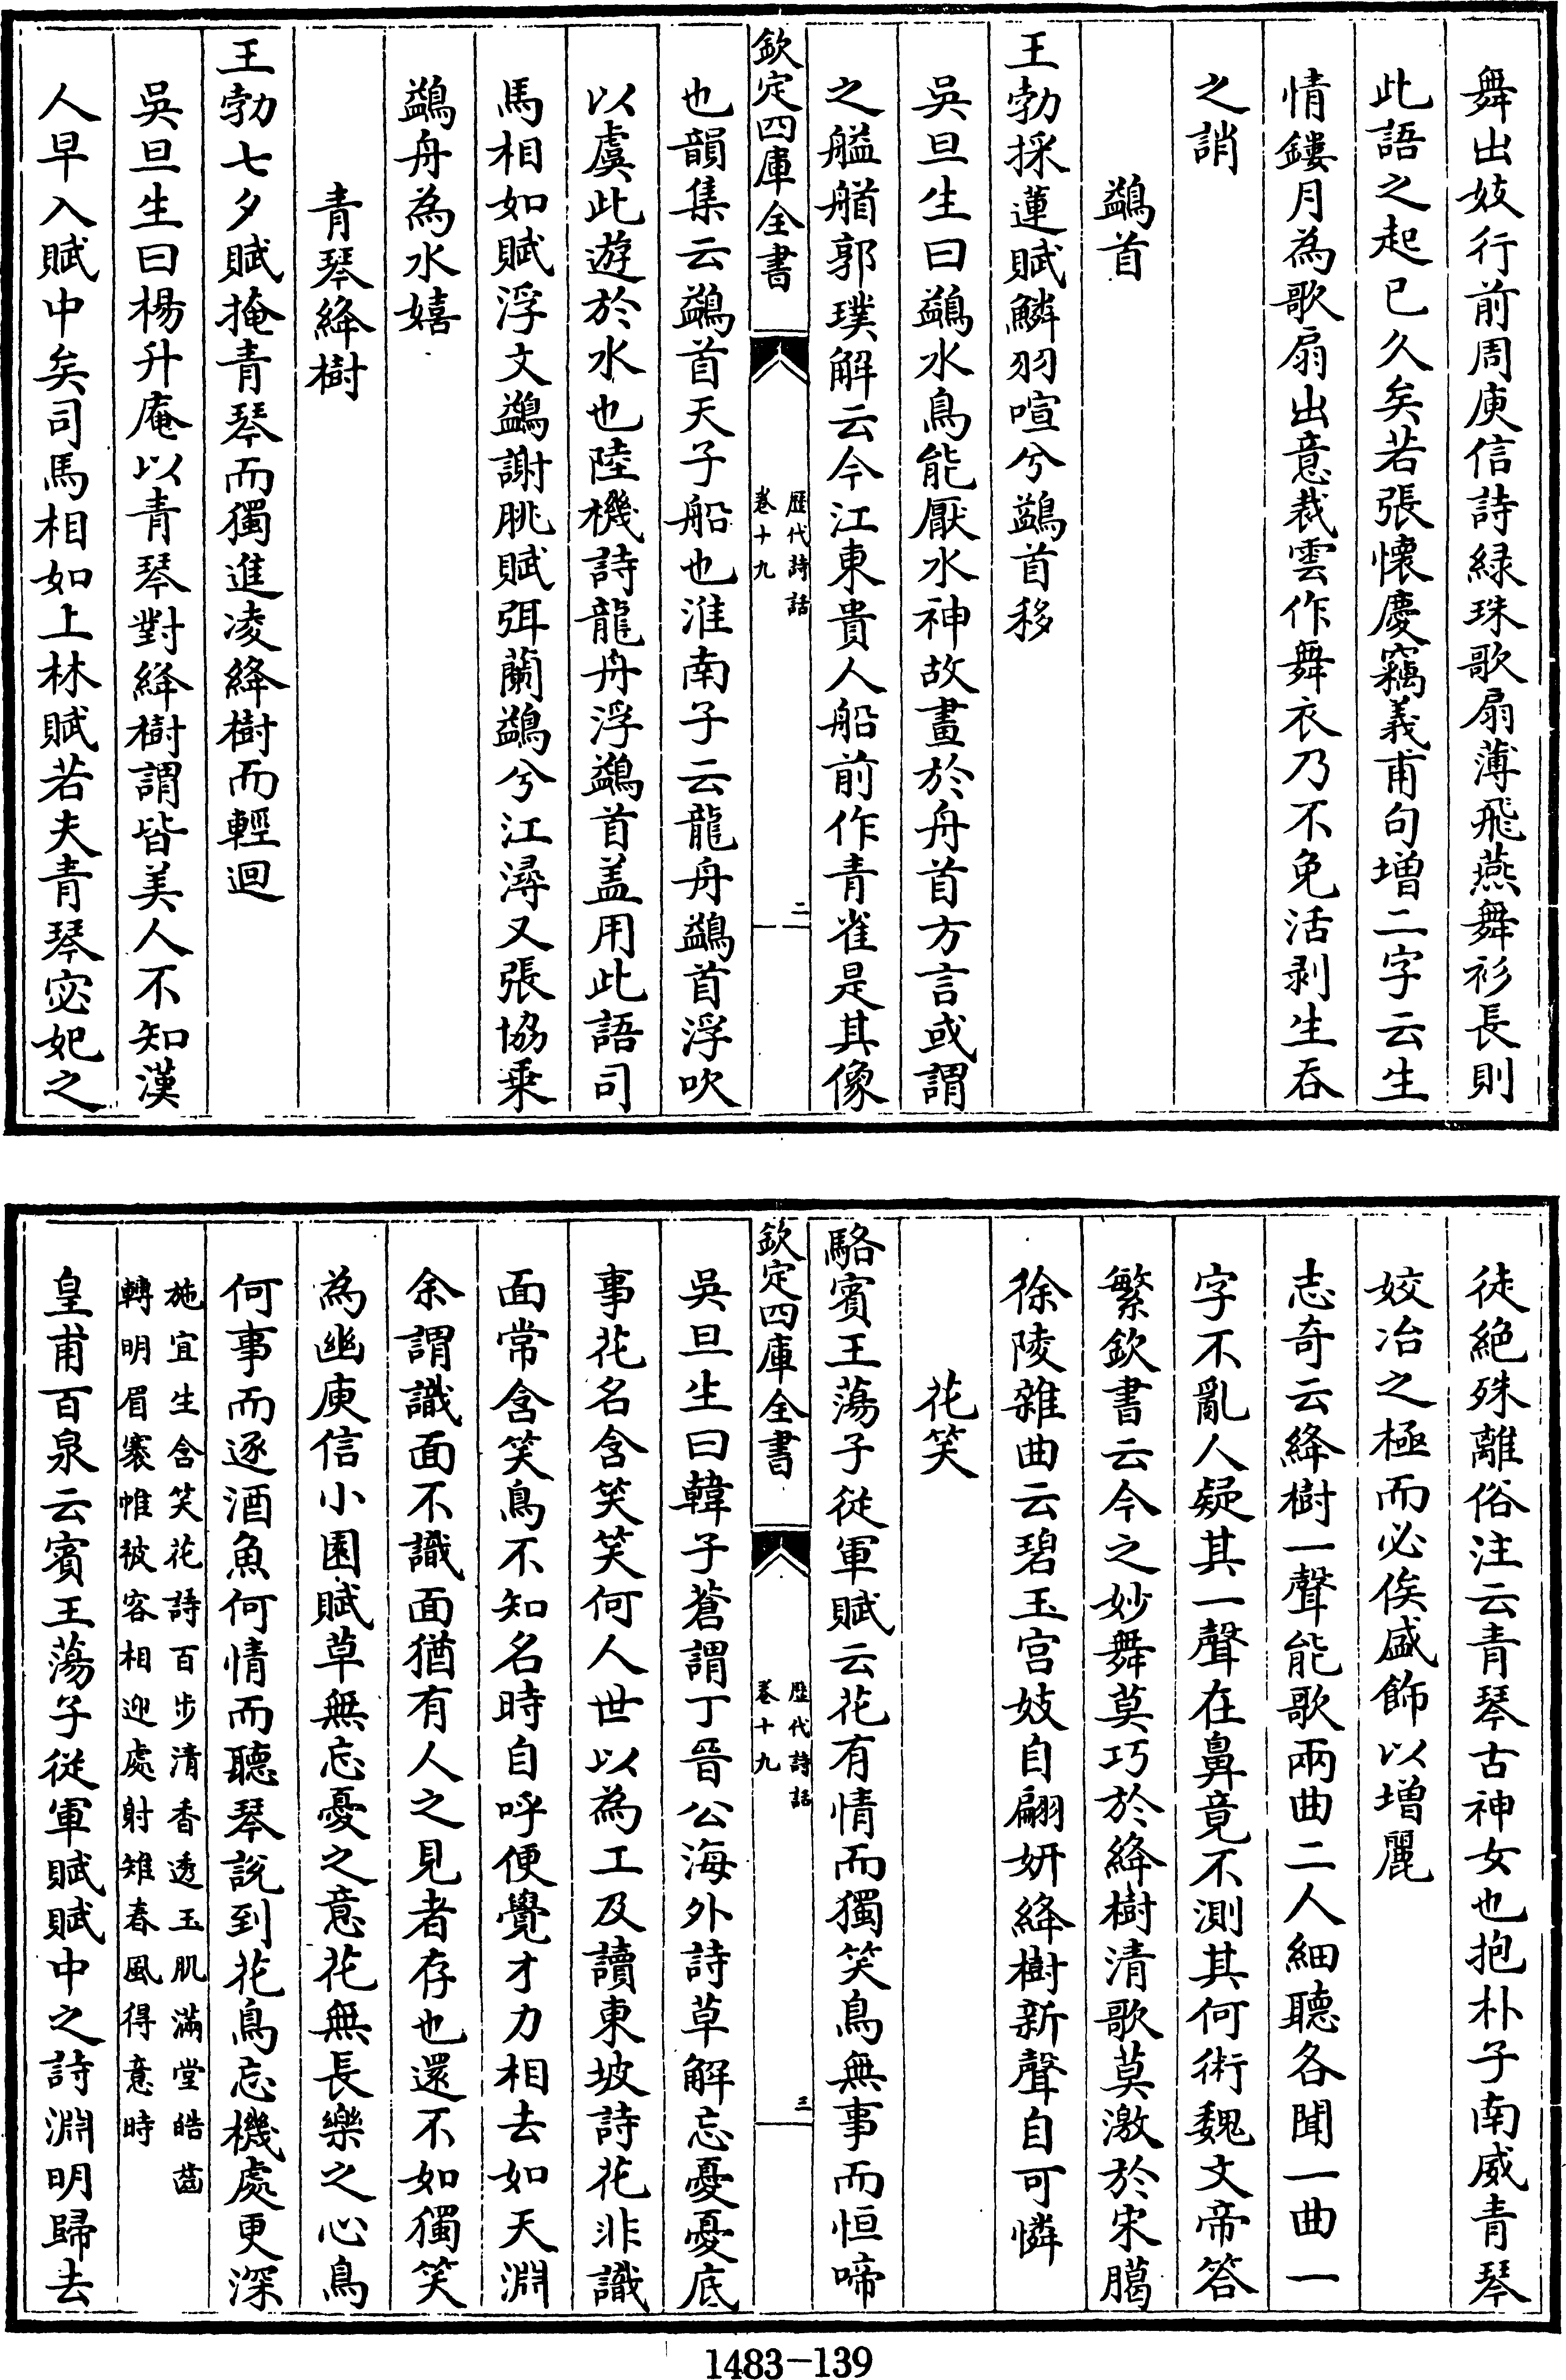 舞出妓行前周庾信詩緑珠歌扇薄飛燕舞衫長則
此語之起已久矣若張懷慶竊義甫句增二字云生
情鏤月為歌扇出意裁雲作舞衣乃不免活剥生吞
之誚
鷁首
王勃採蓮賦鱗羽喧兮鷁首移
吳旦生曰鷁水鳥能厭水神故畫於舟首方言或謂
之艗艏郭璞解云今江東貴人船前作青雀是其像
欽定四庫全書
歴代詩話
卷十九
二
也韻集云鷁首天子船也淮南子云龍舟鷁首浮吹
以虞此遊於水也陸機詩龍舟浮鷁首盖用此語司
馬相如賦浮文鷁謝朓賦弭蘭鷁兮江潯又張協乗
鷁舟為水嬉
青琴絳樹
王勃七夕賦掩青琴而獨進凌絳樹而輕迴
吳旦生曰楊升庵以青琴對絳樹謂皆美人不知漢
人早入賦中矣司馬相如上林賦若夫青琴宓妃之
徒絶殊離俗注云青琴古神女也抱朴子南威青琴
姣冶之極而必俟盛飾以增麗
志奇云絳樹一聲能歌兩曲二人細聽各聞一曲一
字不亂人疑其一聲在鼻竟不測其何術魏文帝答
繁欽書云今之妙舞莫巧於絳樹清歌莫激於宋臈
徐陵雜曲云碧玉宫妓自翩妍絳樹新聲自可憐
花笑
駱賓王蕩子從軍賦云花有情而獨笑鳥無事而恒啼
欽定四庫全書
歴代詩話
卷十九
三
吳旦生曰韓子蒼謂丁晉公海外詩草解忘憂憂底
事花名含笑笑何人世以為工及讀東坡詩花非識
面常含笑鳥不知名時自呼便覺才力相去如天淵
余謂識面不識面猶有人之見者存也還不如獨笑
為幽庾信小園賦草無忘憂之意花無長樂之心鳥
何事而逐酒魚何情而聽琴說到花鳥忘機處更深
施宜生含笑花詩百步清香透玉肌滿堂皓齒
轉明眉褰帷被容相迎處射雉春風得意時
皇甫百泉云賓王蕩子從軍賦賦中之詩淵明歸去
1483-139